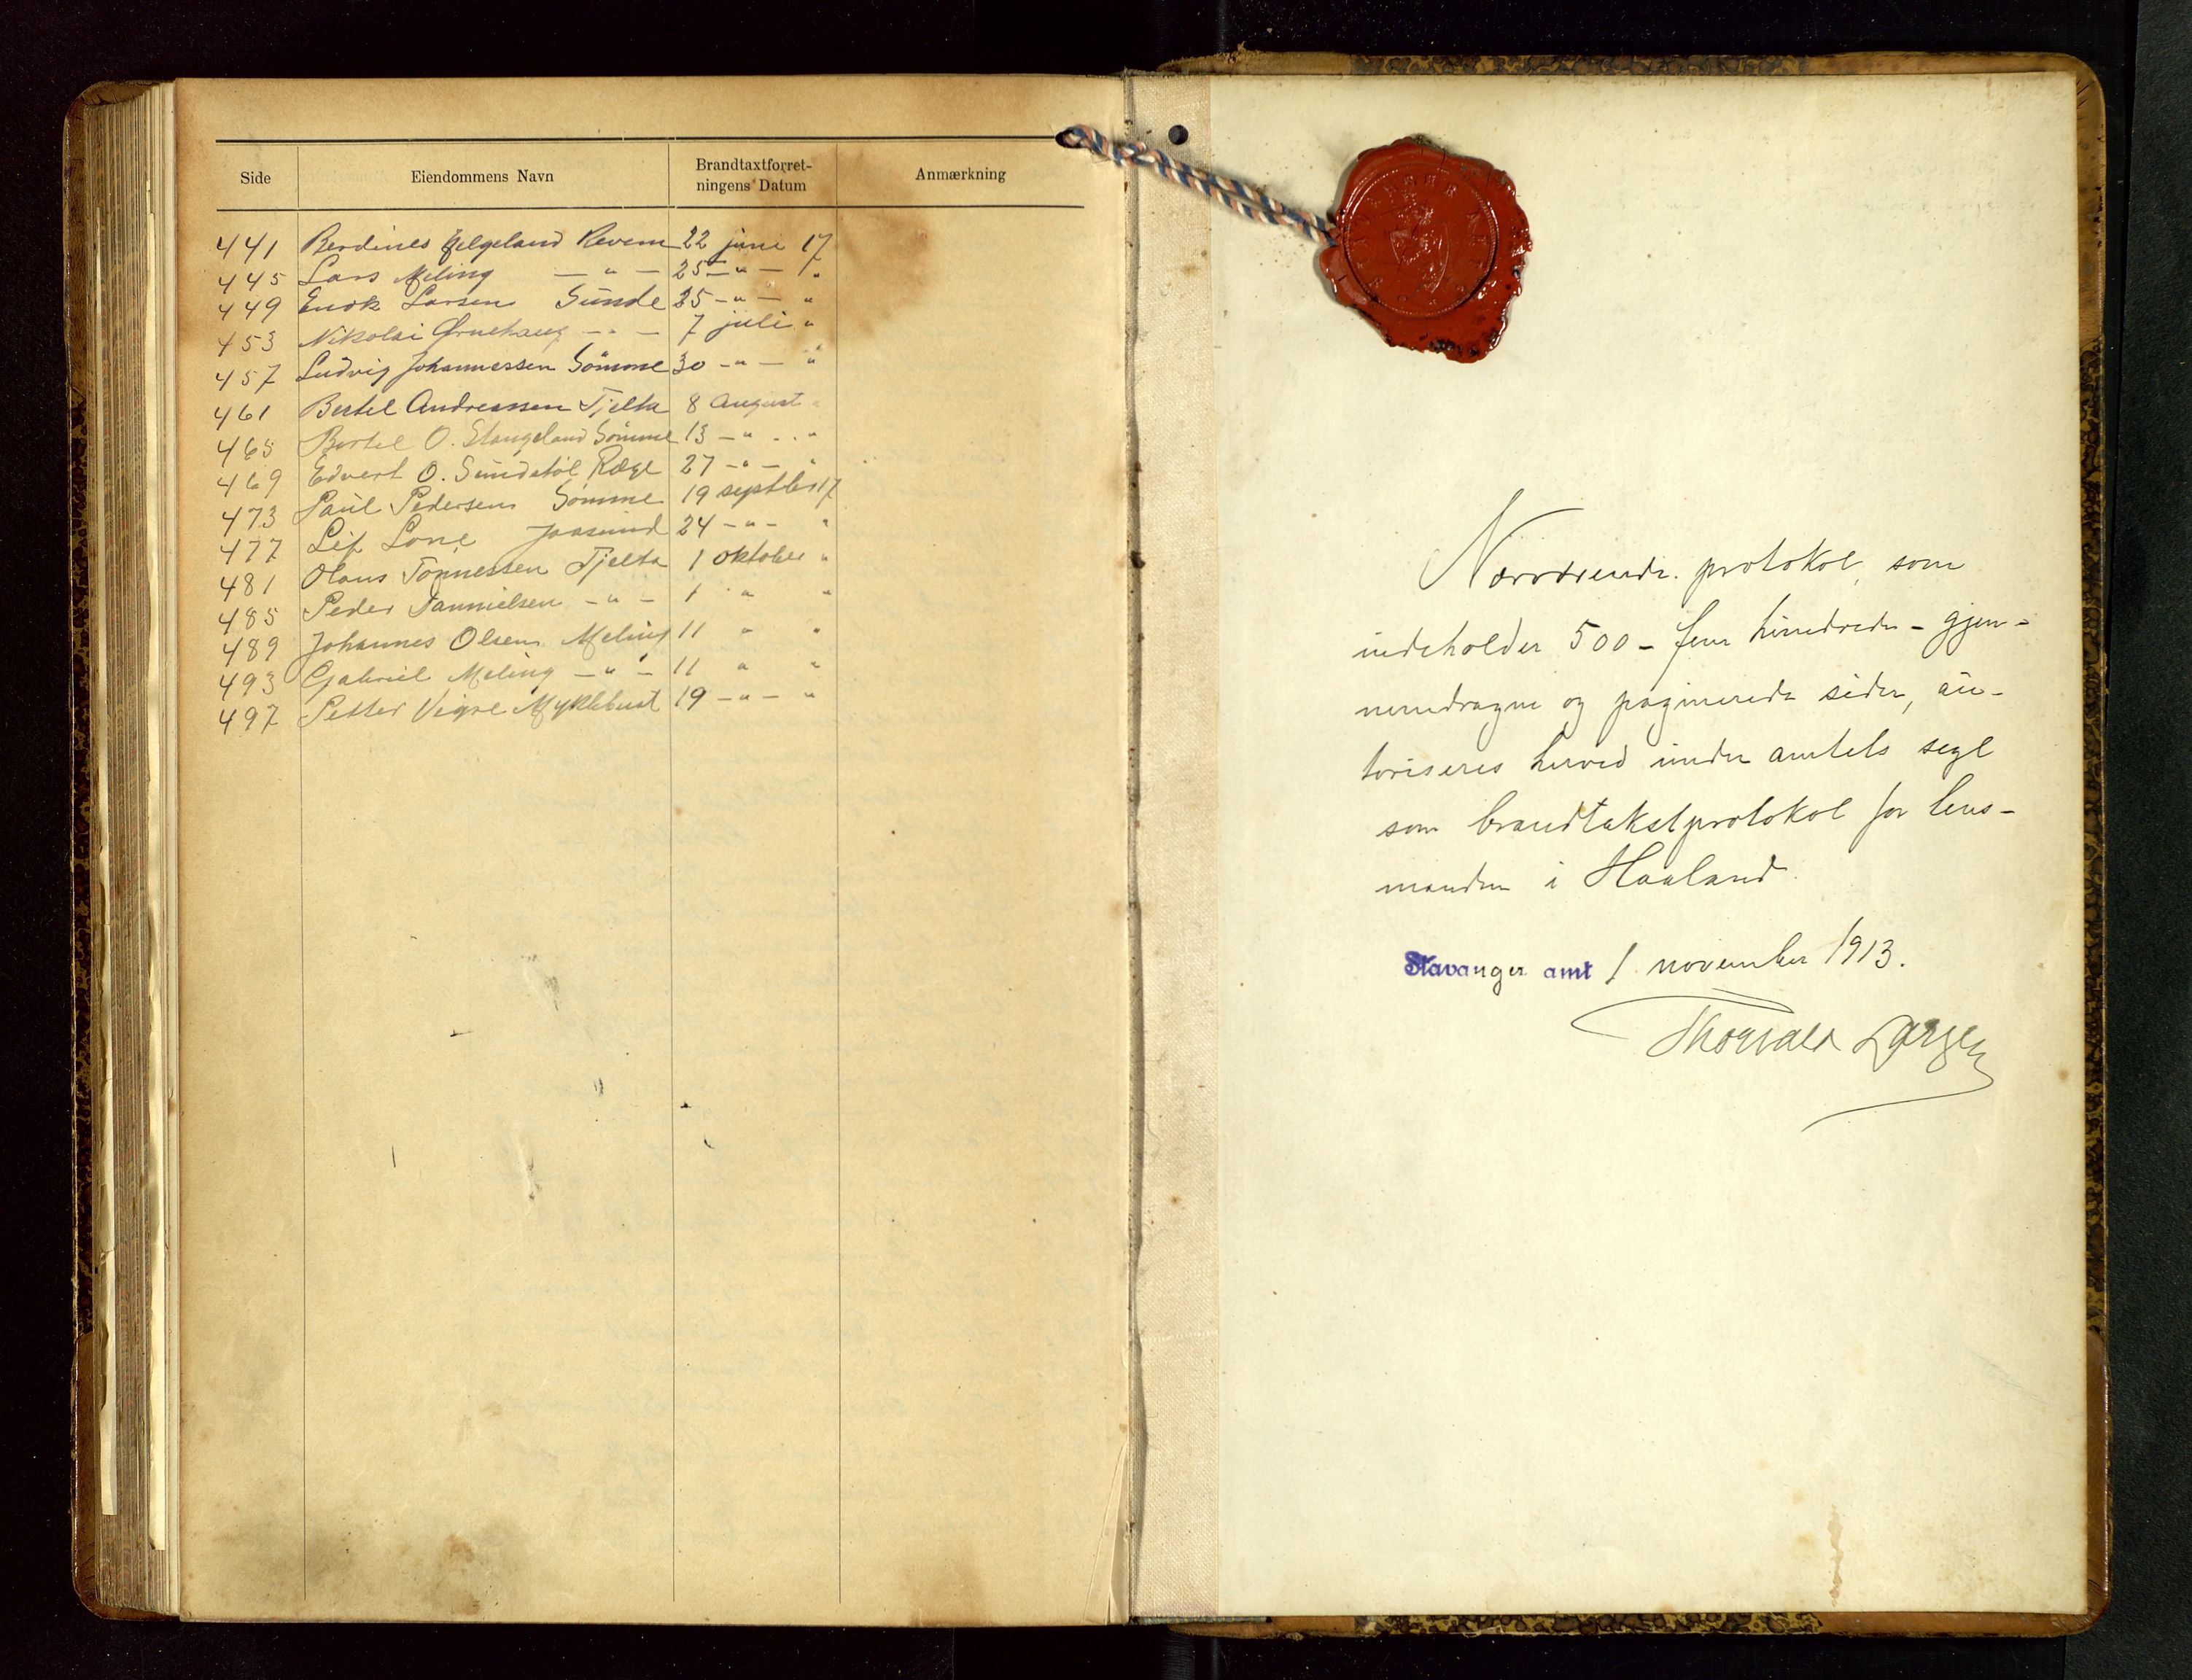 Side Eiendommens Navn Brandtaxtforret-
ningens Datum Anmærkning
441 Berdines Helgeland Revem 22 juni 17
445 Lars Meling — " — 25 — " — "
449 Enok Larsen Sunde 25 — " — "
453 Nikolai Ørnehaug — " — 7 juli "
457 Ludvig Johannessen Sömme 30 — " — "
461 Bertel Andreassen Tjelta 8 August "
465 Bertel O. Stangeland Sömme 13 — " — "
469 Edvert O. Sundstöl Ræge 27 — " — "
473 Paul Pedersen Sömme 19 septbr 17
477 Leif Lone Joasund 24 — " — "
481 Olaus Tönnessen Tjelta 1 oktober "
485 Peder Tannielsen — " — 1 " "
489 Johannes Olsen Meling 11 " "
493 Gabriel Meling — " — 11 " "
497 Petter Vigre Myklebust 19 — " — "
STAVANGER AMT
Nærværende protokol, som
indeholder 500 - fem hundrede - gjen-
nemdragne og paginerede sider, au-
toriseres herved under amtets segl
som brandtakstprotokol for lens-
manden i Haaland.
Stavanger amt 1 november 1913.
Thorvald Larsen